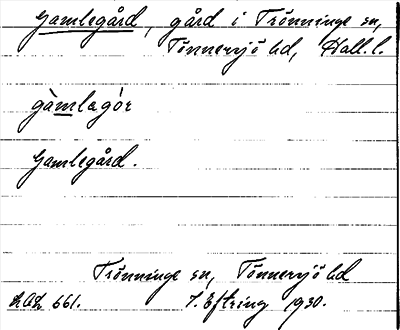 Gamlegård, gård i Trönninge sn,
Tönnersjö hd, Hall. l.
gàmlagór
Gamlegård.
Trönninge sn, Tönnersjö hd
LAL 661. J. Eftring 1930.